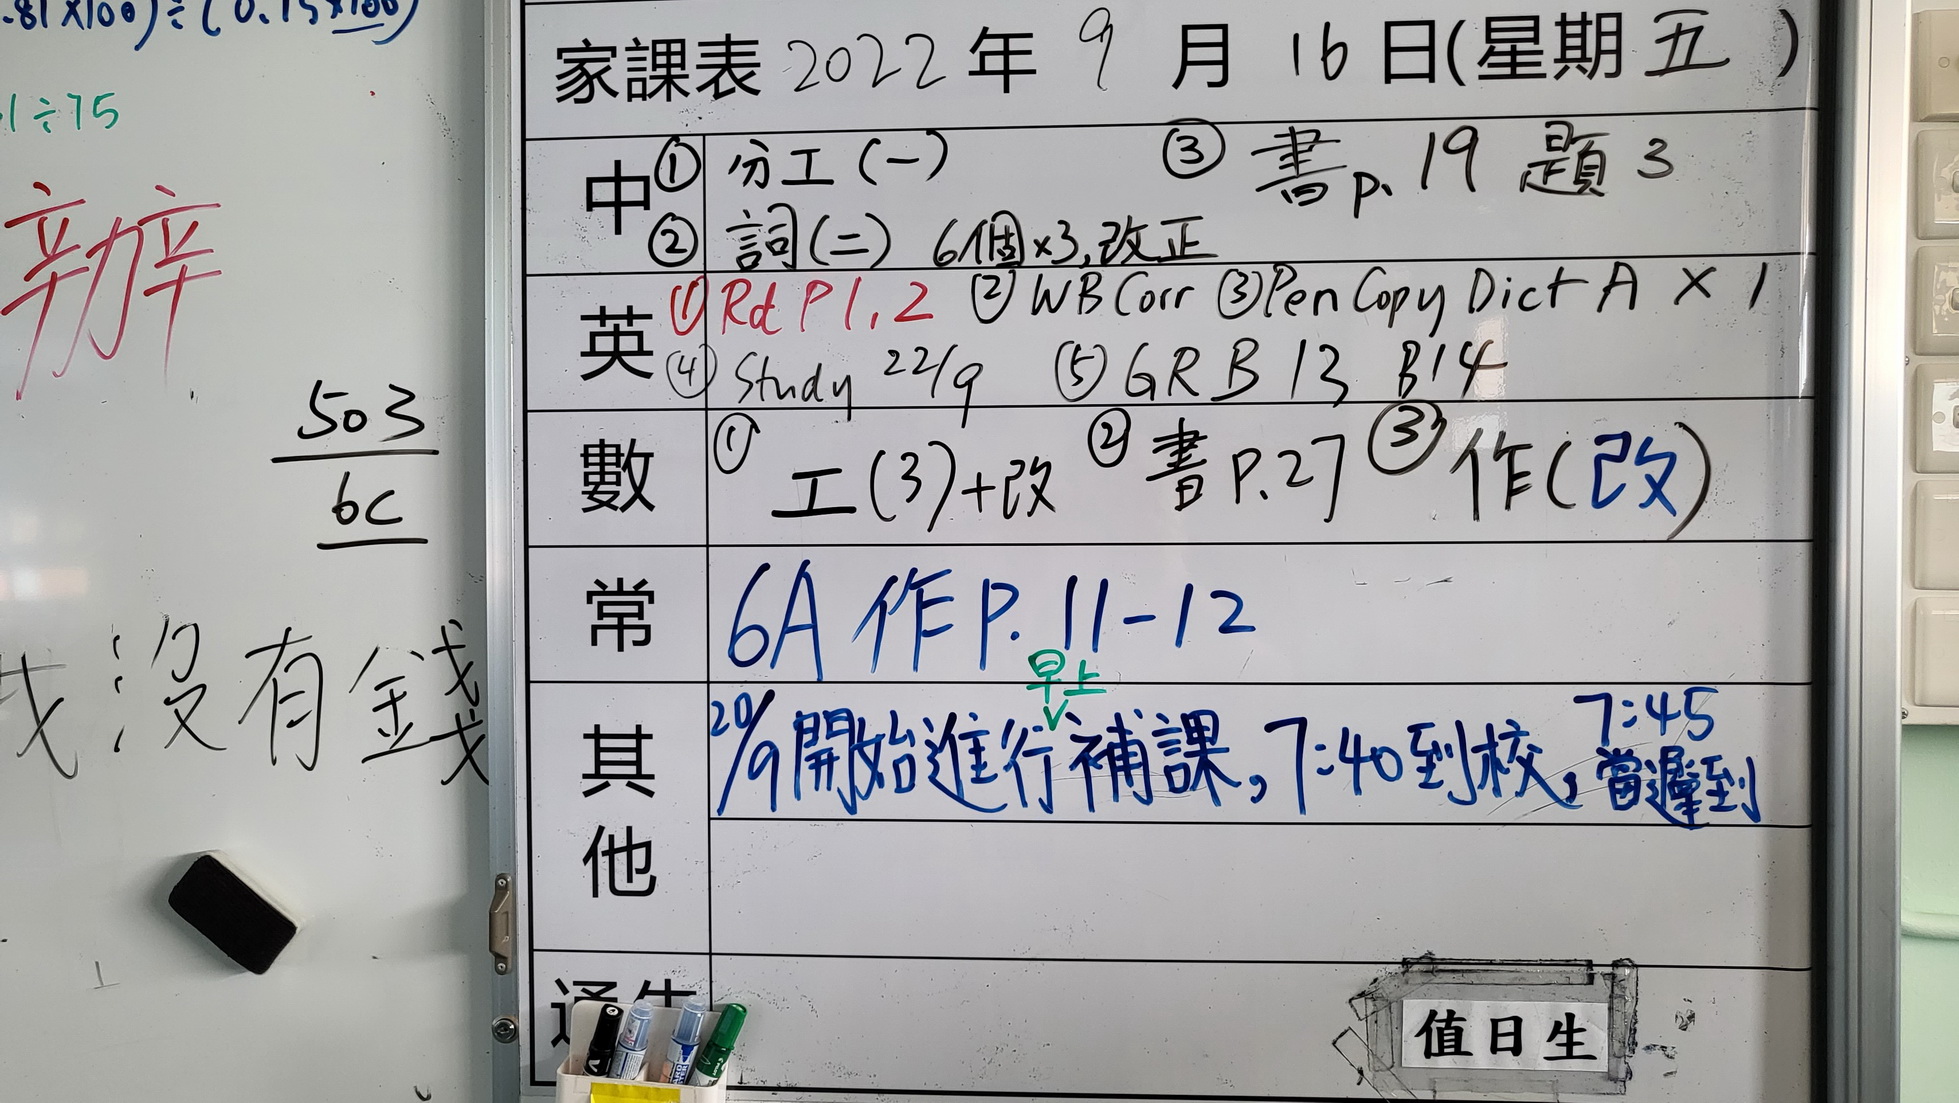 .81×100)÷(0.15×100)
1÷75
辦
503
6C
我沒有錢
家課表 2022年 9月16日(星期五)
中 ① 分工(一) ③ 書p.19 題3
② 詞(二) 6個×3,改正
英 ① Rd P1,2 ② WB Corr ③ Pen Copy Dict A × 1
④ Study 22/9 ⑤ GR B13 B14
數 ① 工(3)+改 ② 書P.27 ③ 作(改)
常 6A 作P.11-12
早上
其他 20/9開始進行補課,7:40到校,7:45當遲到
通告
值日生